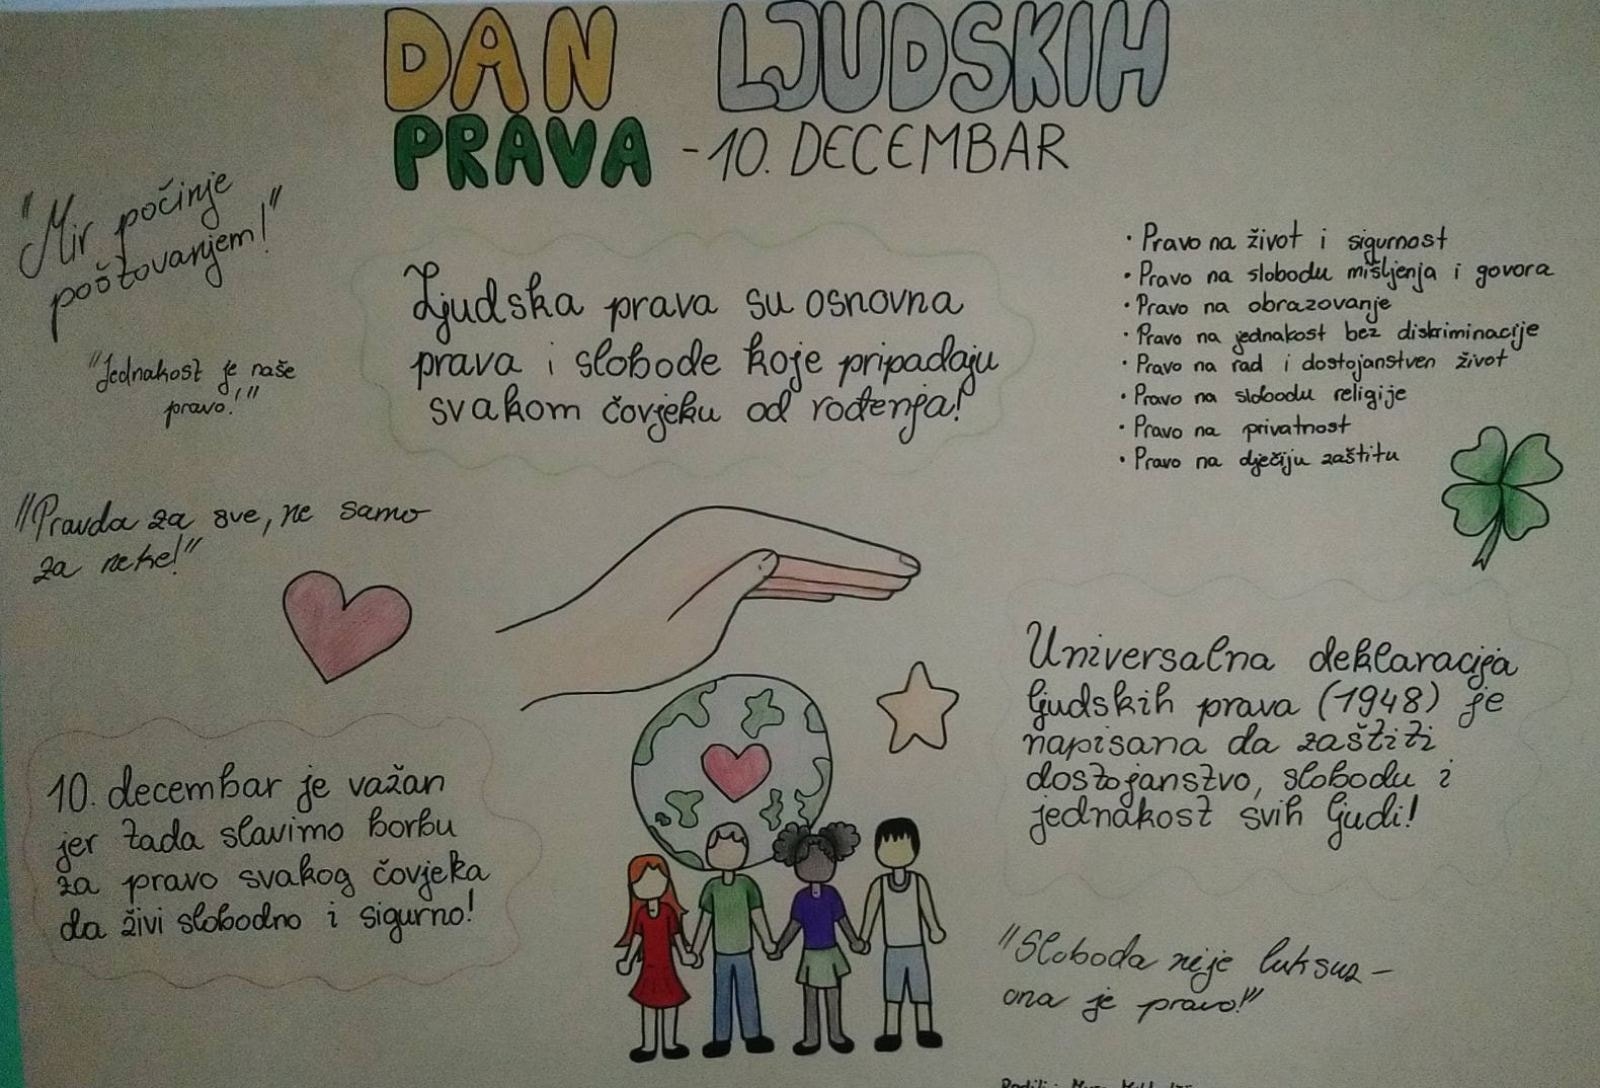 DAN LJUDSKIH
PRAVA - 10. DECEMBAR
"Mir počinje
poštovanjem!"
"Jednakost je naše
pravo!"
"Pravda za sve, ne samo
za neke!"
Ljudska prava su osnovna
prava i slobode koje pripadaju
svakom čovjeku od rođenja!
• Pravo na život i sigurnost
• Pravo na slobodu mišljenja i govora
• Pravo na obrazovanje
• Pravo na jednakost bez diskriminacije
• Pravo na rad i dostojanstven život
• Pravo na slobodu religije
• Pravo na privatnost
• Pravo na dječiju zaštitu
10. decembar je važan
jer tada slavimo borbu
za pravo svakog čovjeka
da živi slobodno i sigurno!
Univerzalna deklaracija
ljudskih prava (1948) je
napisana da zaštiti
dostojanstvo, slobodu i
jednakost svih ljudi!
"Sloboda nije luksuz -
ona je pravo!"